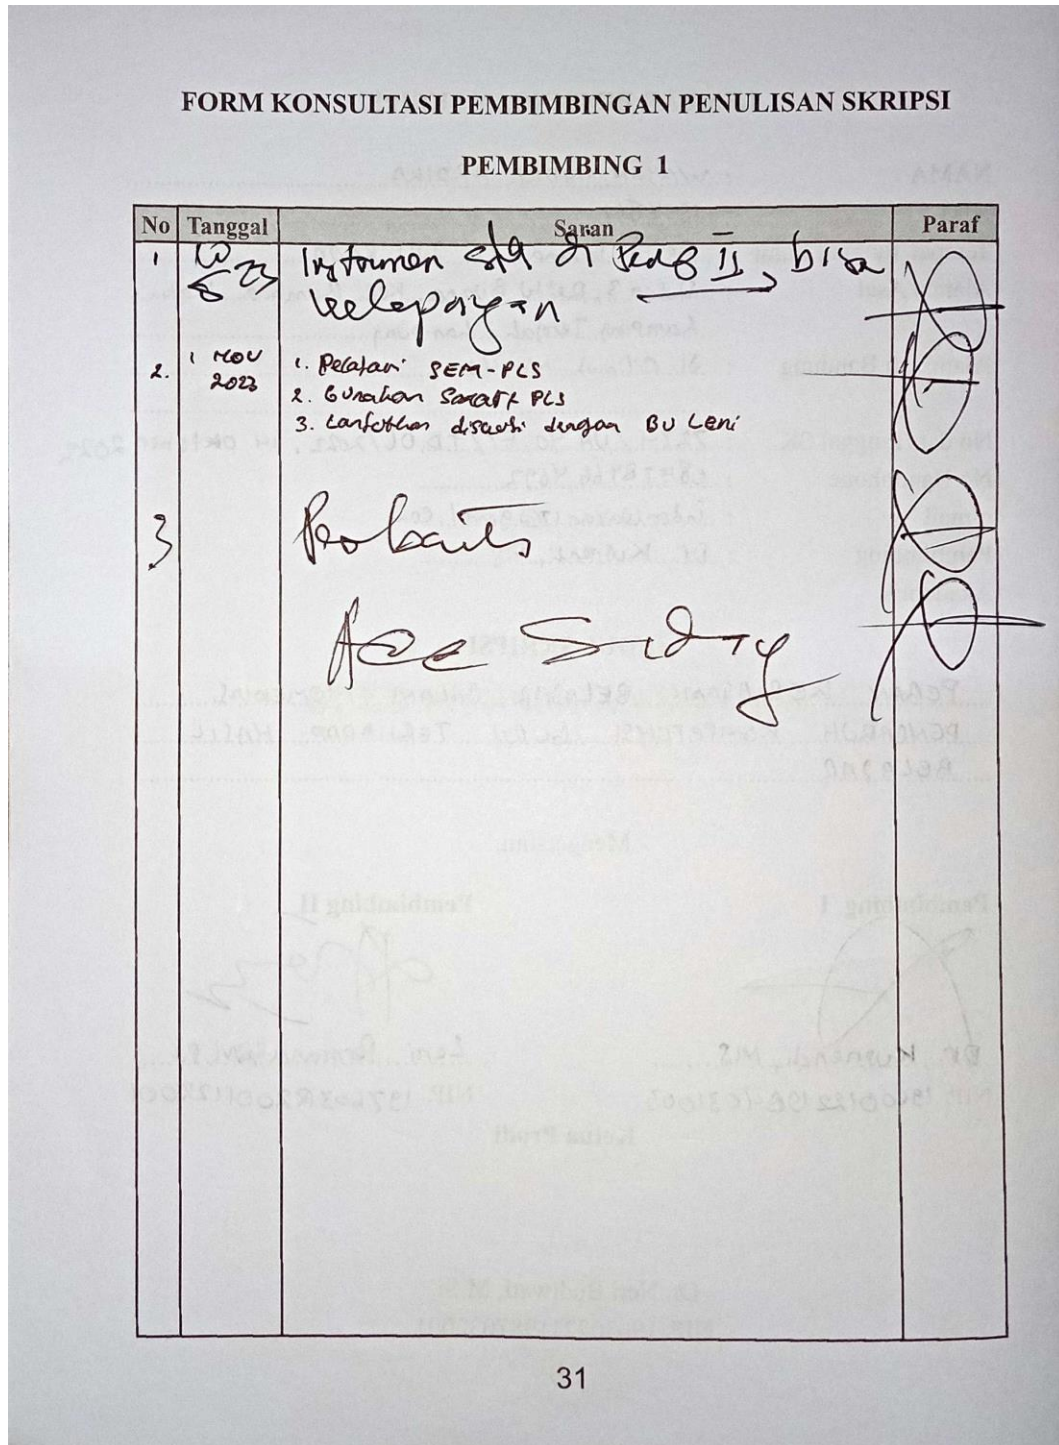 FORM KONSULTASI PEMBIMBINGAN PENULISAN SKRIPSI
PEMBIMBING 1
No Tanggal Saran Paraf
1 23 Instrumen di II, bisa
kelapangan
2. 1 NOV 2023 1. Pelajari SEM-PLS
2. Gunakan Smart PLS
3. Lanjutkan diskusi dengan BU Leni
3
Acc Sidang
31